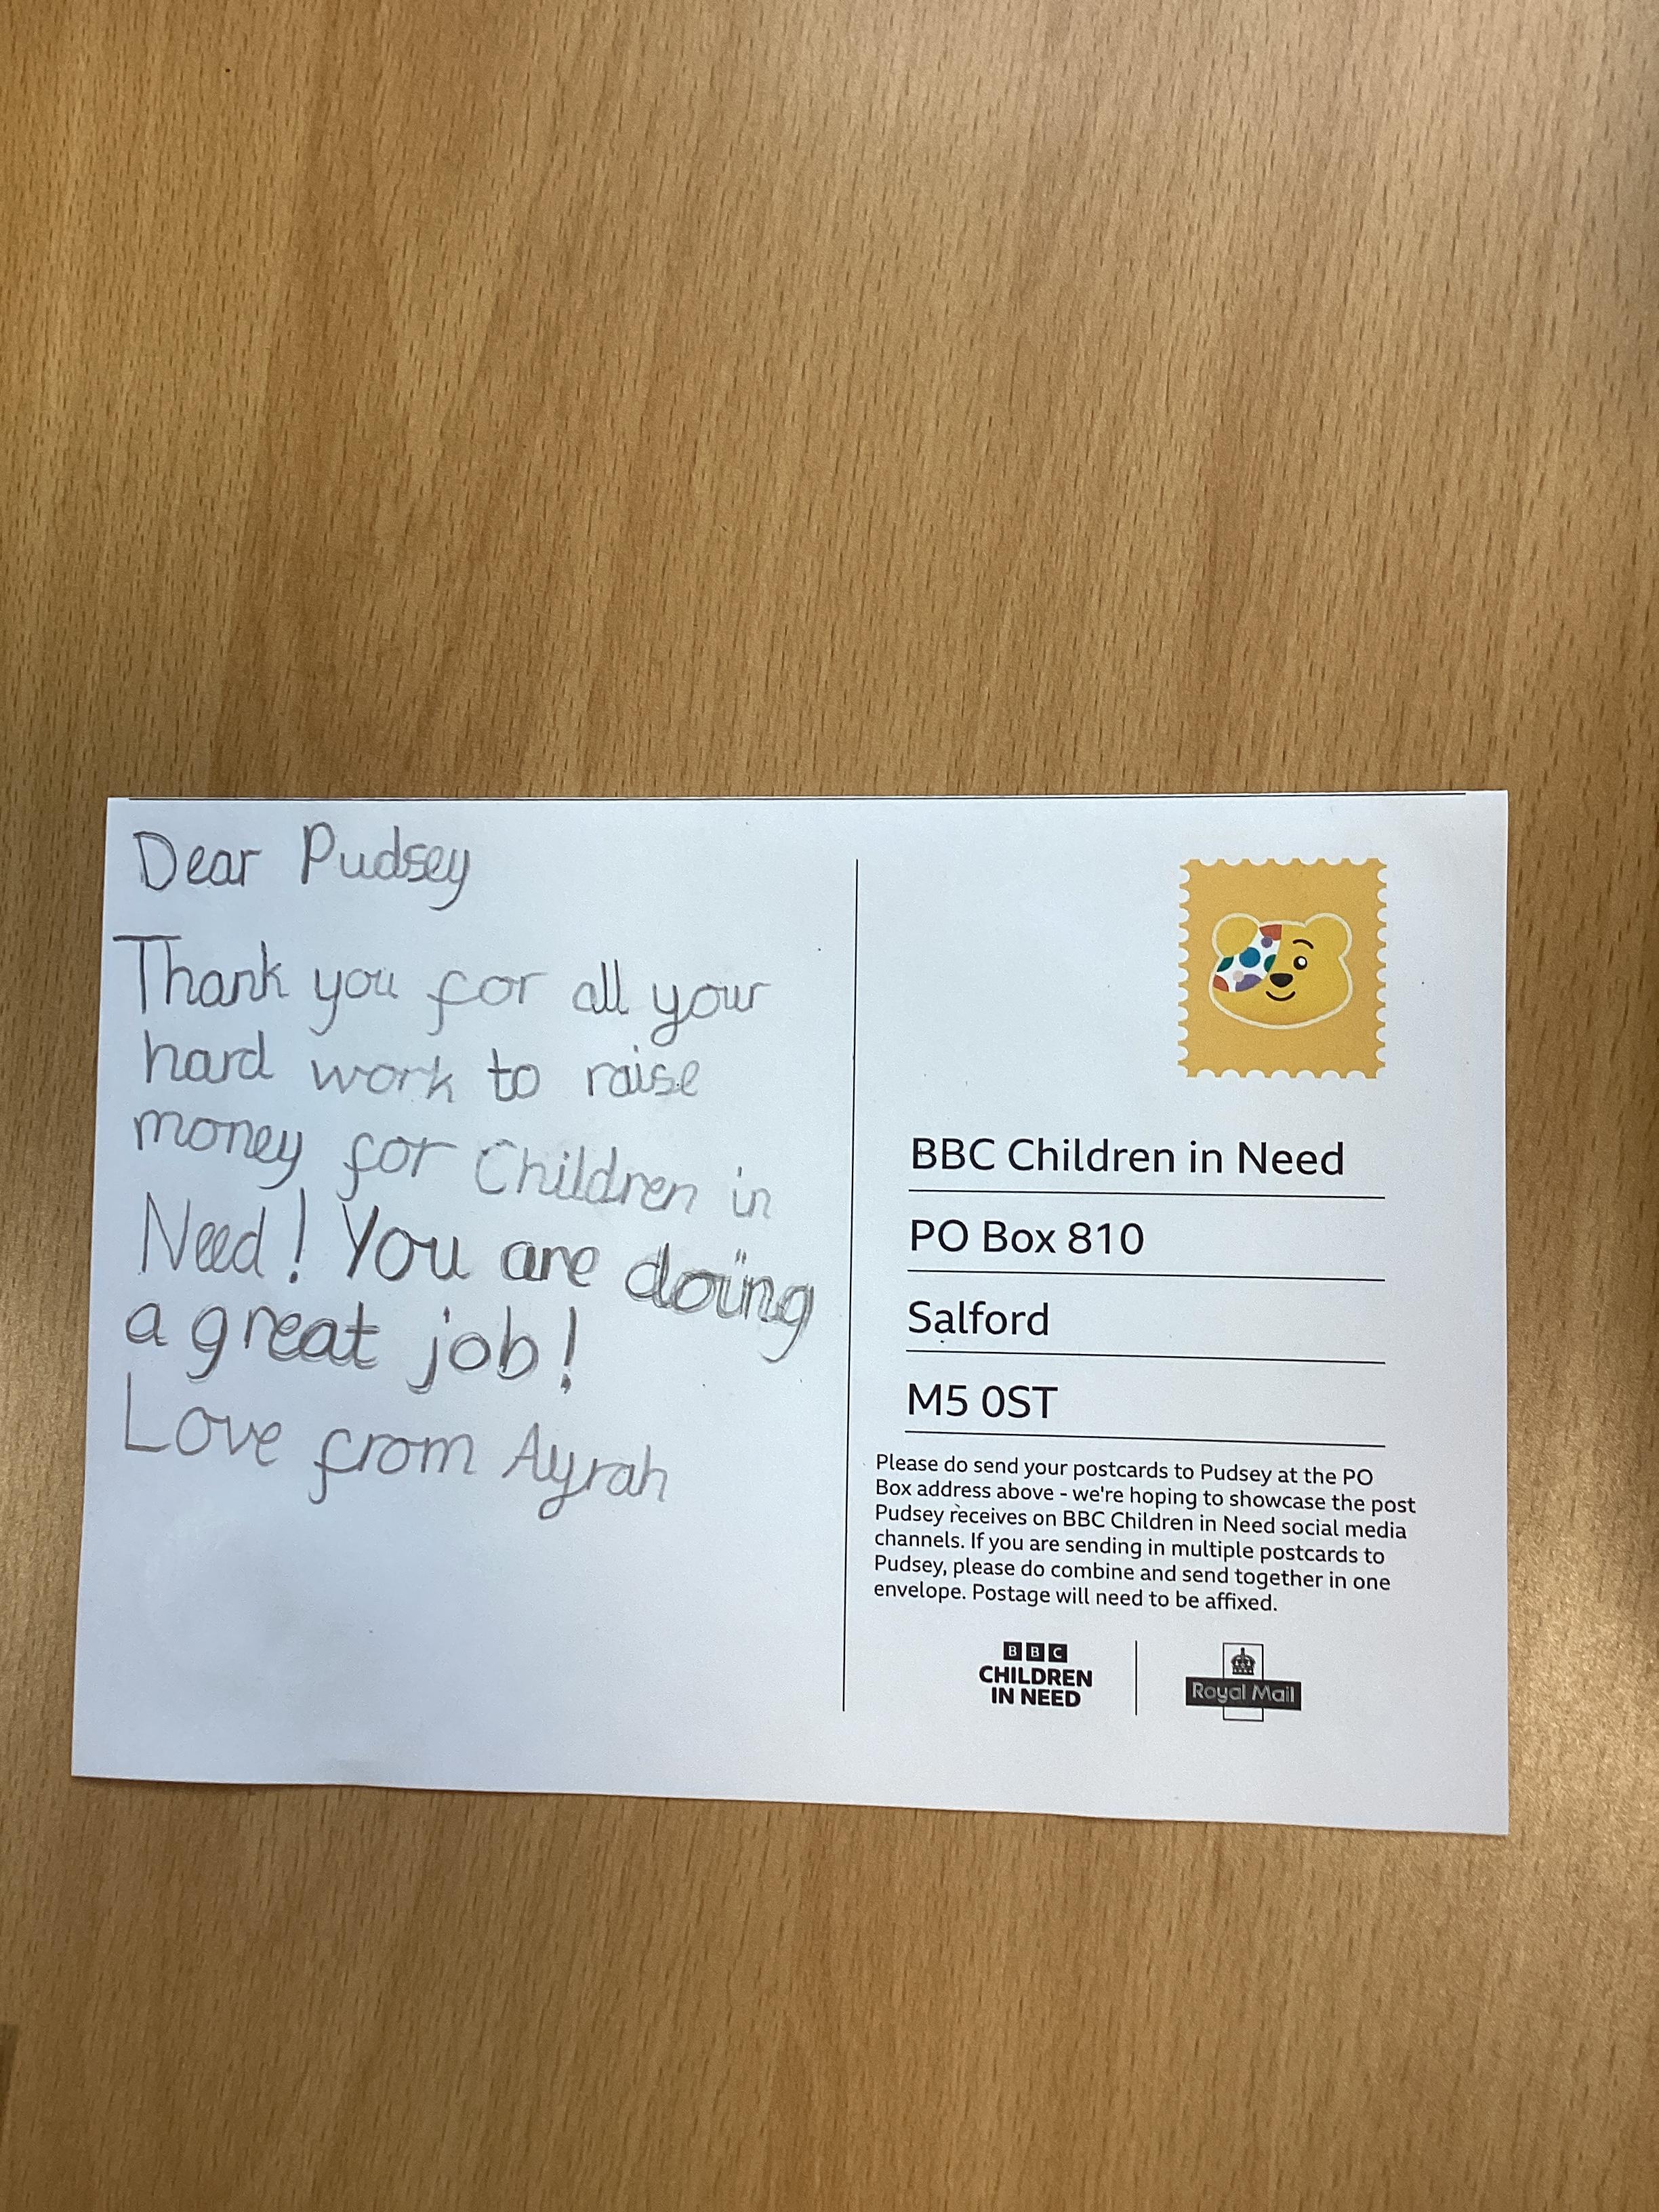 Dear Pudsey
Thank you for all your
hard work to raise
money for Children in
Need! You are doing
a great job!
Love from Ayrah
BBC Children in Need
PO Box 810
Salford
M5 0ST
Please do send your postcards to Pudsey at the PO
Box address above - we're hoping to showcase the post
Pudsey receives on BBC Children in Need social media
channels. If you are sending in multiple postcards to
Pudsey, please do combine and send together in one
envelope. Postage will need to be affixed.
BBC
CHILDREN
IN NEED
Royal Mail